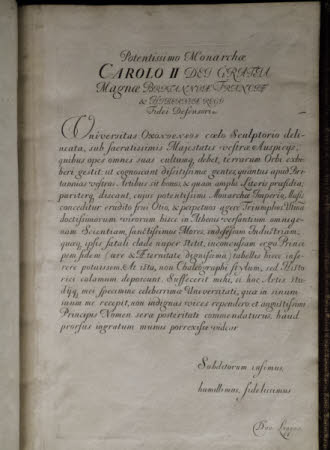 Potentissimo Monarchæ
CAROLO II DEI GRATIA
Magnæ BRITANNIÆ FRANCIÆ
& HIBERNIÆ REGI
Fidei Defensori
Universitas OXONIENSIS cœlo Sculptorio deli-
neata, sub sacratissimis Majestatis vestræ Auspicijs,
quibus opes omnes suas cultumq, debet, terrarum Orbi exhi-
beri gestit: ut cognoscant dissitissimæ gentes, quantus apud Bri-
tannias vestras Artibus sit honos, & quam ampla Literis præsidia;
pariterq, discant, cujus potentissimi Monarchæ Imperio, Musis
conceditur erudito frui Otio, & perpetuos agere Triumphos. Utinam
doctissimorum virorum hisce in Athenis versantium omnige-
nam Scientiam, sanctissimos Mores, indefessam Industriam,
quaq, ipse fatali clade nuper stetit, inconcussam erga Princi-
pem fidem (ære & Æternitate dignissima) tabellis hisce inse-
rere potuissem. At ista, non Chalcographi stylum, sed Histo-
rici calamum deposcunt. Suffecerit mihi, si hoc Artis stu-
dijq, mei specimine celeberrimæ Universitati, quæ in sinum
suum me recepit, non indignas vices rependero: et augustissimi
Principis Nomen seræ posteritati commendaturus, haud
prorsus ingratum munus porrexisse videar
Subditorum infimus,
humillimus, fidelissimus
Dav. Loggan